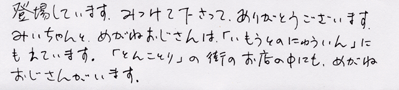 登場しています。みつけて下さって、ありがとうございます。
みぃちゃんと、めがねおじさんは、「いもうとのにゅういん」に
もえています。「とんことり」の街のお店の中にも、めがね
おじさんがいます。